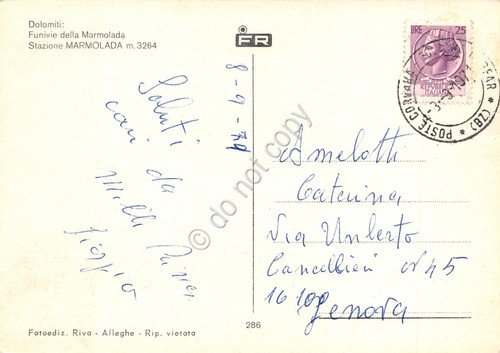 Dolomiti:
Funivie della Marmolada
Stazione MARMOLADA m. 3264
FR
LIRE 25
POSTE CORVARA
(ZB)
8-9-71
Saluti
cari da
Milli
Giorgio
Amelotti
Caterina
Via Umberto
Cancellieri N 45
16100
Genova
do not copy
Fotoediz. Riva - Alleghe - Rip. vietata
286